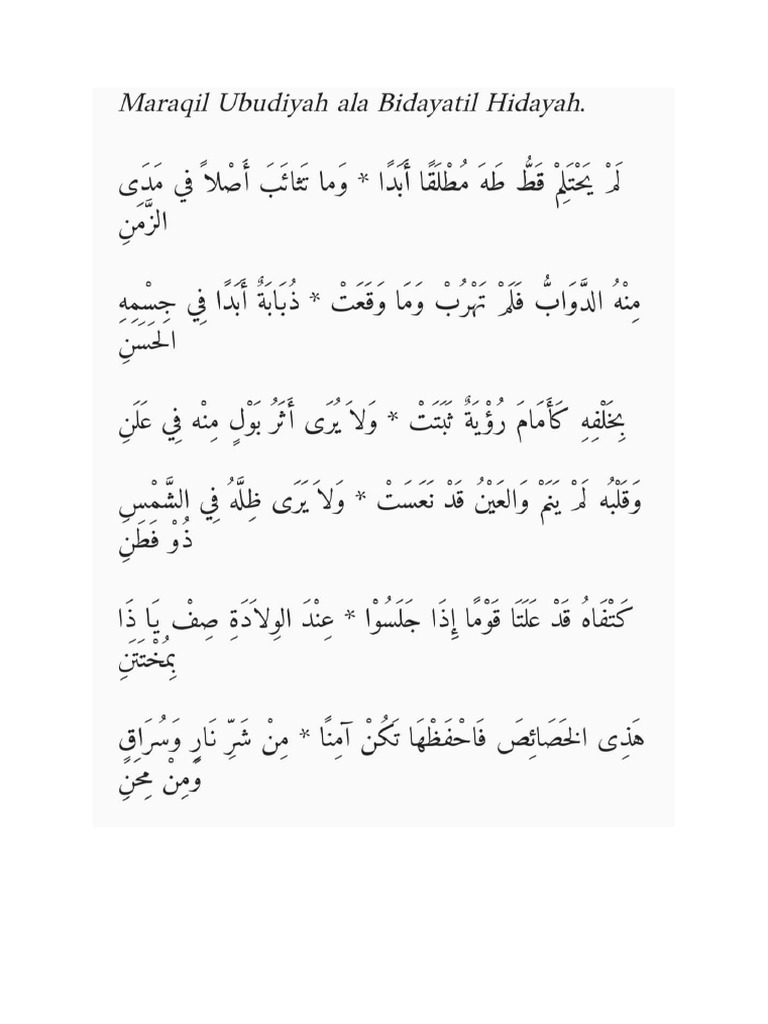 Maraqil Ubudiyah ala Bidayatil Hidayah.
لَمْ يَحْتَلِمْ قَطُّ طَهَ مُطْلَقًا أَبَدًا * وَما تَثائَبَ أَصْلاً في مَدَى
الزَّمَنِ
مِنْهُ الدَّوَابُّ فَلَمْ تَهْرُبْ وَمَا وَقَعَتْ * ذُبَابَةٌ أَبَدًا فِي جِسْمِهِ
الحَسَنِ
بِخَلْفِهِ كَأَمَامَ رُؤْيَةٌ ثَبَتَتْ * وَلاَ يُرَى أَثَرُ بَوْلٍ مِنْه فِي عَلَنِ
وَقَلْبُه لَمْ يَنَمْ وَالعَيْنُ قَدْ نَعَسَتْ * وَلاَ يَرَى ظِلَّهُ فِي الشَّمْسِ
ذُوْ فَطَنِ
كَتْفَاهُ قَدْ عَلَتَا قَوْمًا إِذَا جَلَسُوْا * عِنْدَ الوِلاَدَةِ صِفْ يَا ذَا
بِمُخْتَتَنِ
هَذِى الخَصَائِصَ فَاحْفَظْهَا تَكُنْ آمِنًا * مِنْ شَرِّ نَارٍ وَسُرَاقٍ
وَمِنْ مِحَنِ